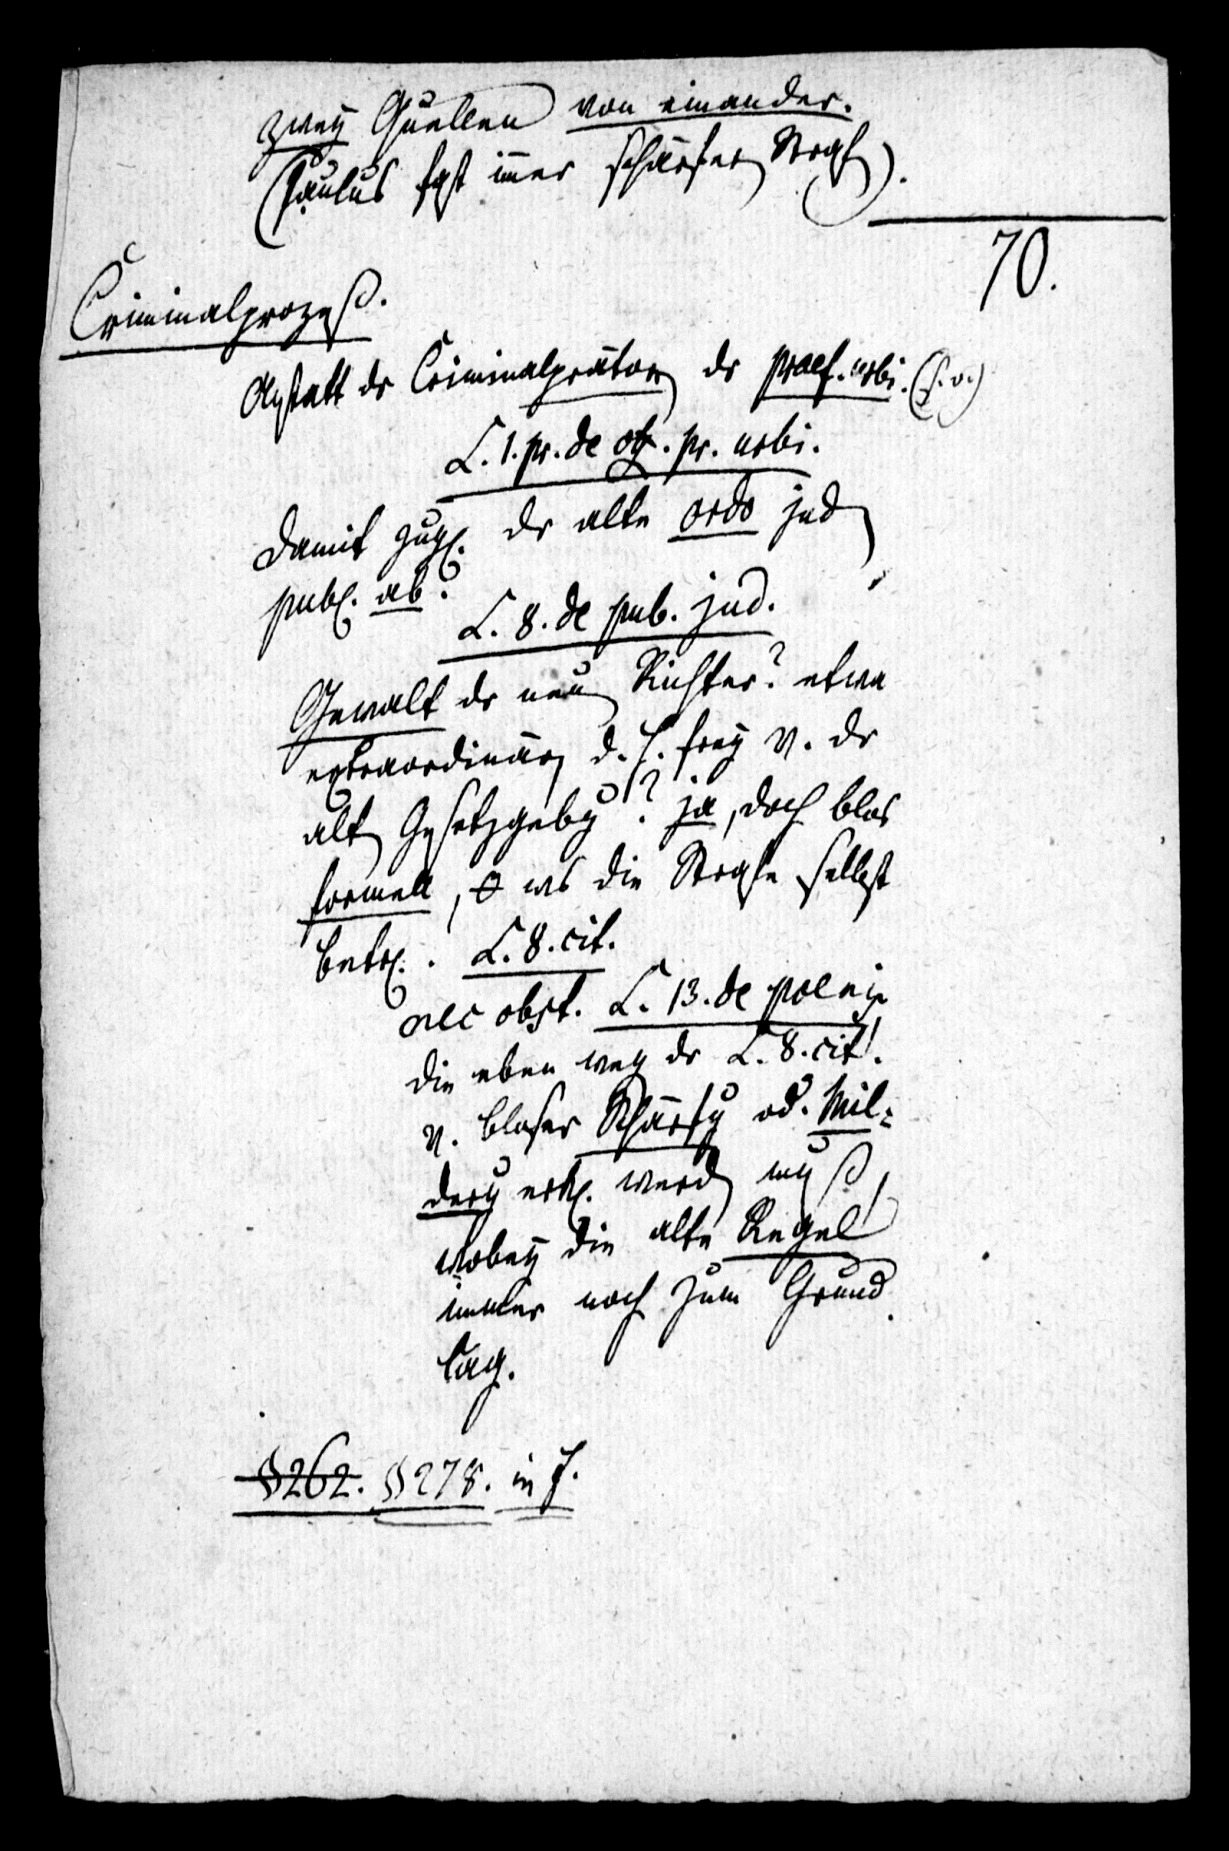 zwey Quellen von einander.
(Paulus fast immer schärfer Straf).
70.
Criminalprozeß.
Anstatt der Criminalprätoren der praef. urbi. (s. o.)
L. 1. pr. de off. pr. urbi.
damit zugl. der alte ordo jud
publ. ab?
L. 8. de pub. jud.
Gewalt der neuen Richter? etwa
extraordinär, d. h. frey v. der
alten Gesetzgebung? ja, doch blos
formell, was die Strafe selbst
betr. L. 8. cit.
nec obst. L. 13. de poenis
die eben wegen der L. 8. cit.
v. bloser Schärfung od. Mil-
derung erkl. werden muß,
wobey die alte Regel
immer noch zum Grund
lag.
§ 262. § 278. in f.